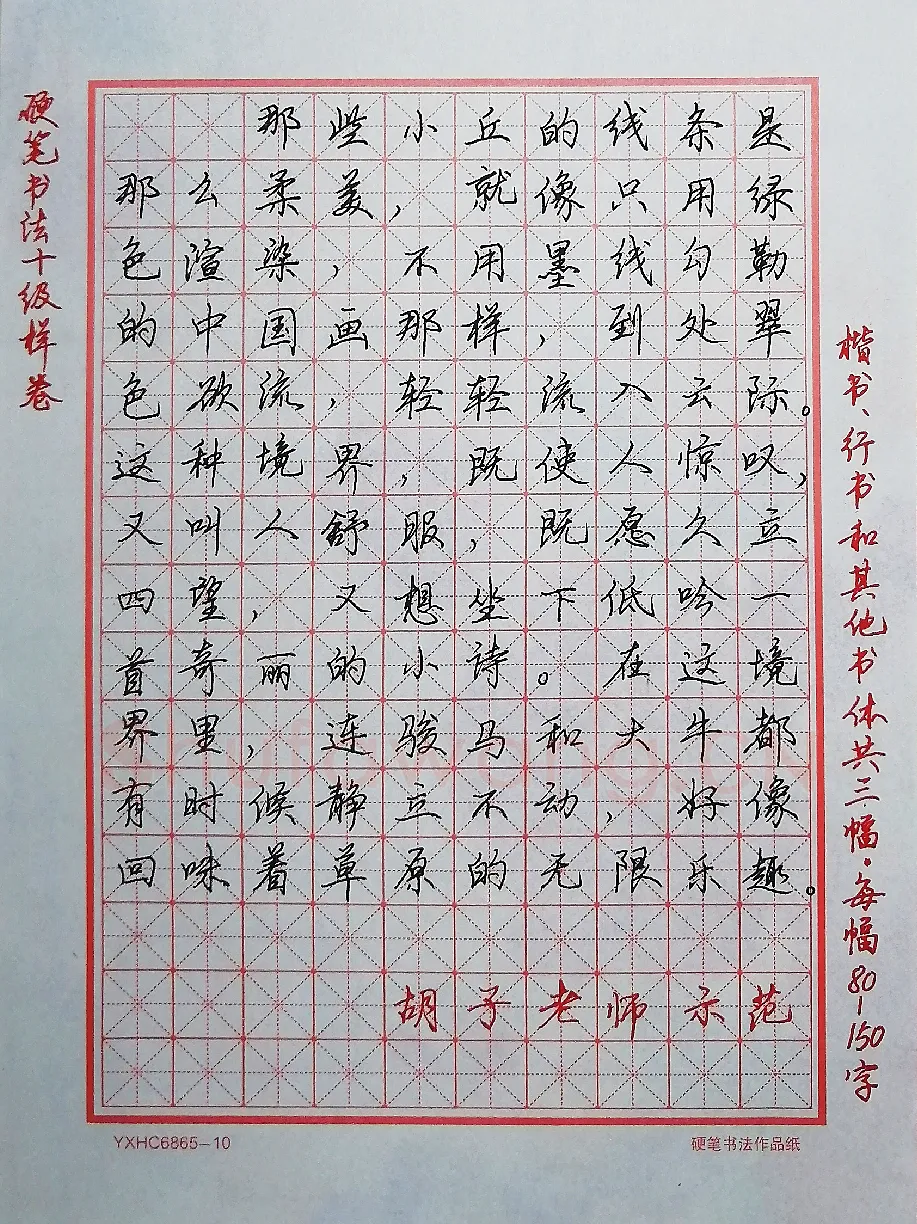 硬笔书法十级样卷
那些小丘的线条是
那么柔美，就像只用绿
色渲染，不用墨线勾勒
的中国画那样，到处翠
色欲流，轻轻流入云际。
这种境界，既使人惊叹，
又叫人舒服，既愿久立
四望，又想坐下低吟一
首奇丽的小诗。在这境
界里，连骏马和大牛都
有时候静立不动，好像
回味着草原的无限乐趣。
胡子老师示范
楷书、行书和其他书体共三幅·每幅80-150字
YXHC6865-10
硬笔书法作品纸